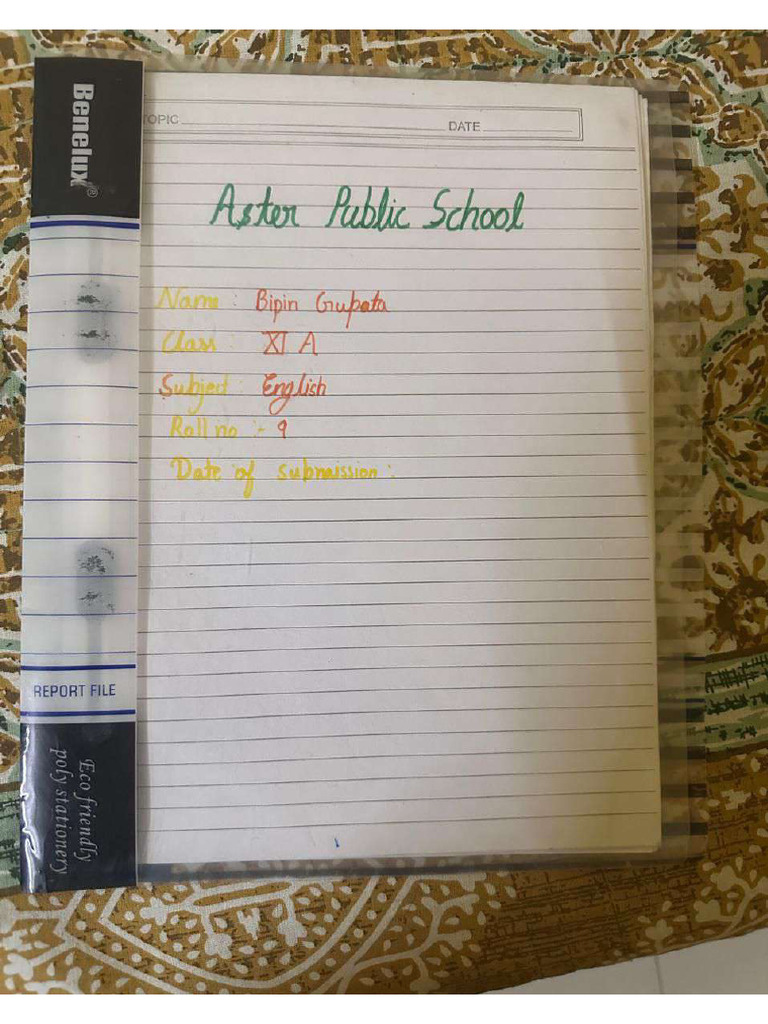 Benelux®
TOPIC
DATE
Aster Public School
Name : Bipin Gupata
Class : XI A
Subject : English
Roll no :- 9
Date of submission :
REPORT FILE
Eco friendly
poly stationery